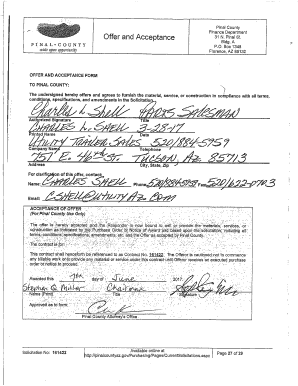 PINAL • COUNTY
wide open opportunity
Offer and Acceptance
Pinal County
Finance Department
31 N. Pinal St.
Bldg. A
P.O. Box 1348
Florence, AZ 85132
OFFER AND ACCEPTANCE FORM
TO PINAL COUNTY:
The undersigned hereby offers and agrees to furnish the material, service, or construction in compliance with all terms,
conditions, specifications, and amendments in the Solicitation.
Charles L Shell PARTS SALESMAN
Authorized Signature Title
CHARLES L. SHELL 3-28-17
Printed Name Date
UTILITY TRAILER SALES 520/884-5959
Company Name Telephone
757 E. 46th ST. TUCSON, AZ. 85713
Address City, State, Zip
For clarification of this offer, contact:
Name: CHARLES SHELL Phone: 520/884-5959 Fax: 520/622-0703
Email: CSHELL@UTILITYAZ.COM
ACCEPTANCE OF OFFER
(For Pinal County Use Only)
The offer is hereby accepted and the Responder is now bound to sell or provide the materials, services, or
construction as indicated by the Purchase Order or Notice of Award and based upon the solicitation, including all
terms, conditions, specifications, amendments, etc. and the Offer as accepted by Pinal County.
The contract is for:
This contract shall henceforth be referenced to as Contract No. 161422. The Offeror is cautioned not to commence
any billable work or to provide any material or service under this contract until Offeror receives an executed purchase
order or notice to proceed.
Awarded this 7th day of June 2017
Stephen Q Miller Chairman
Name (Print) Title Signature
Approved as to form:
Pinal County Attorney's Office
Solicitation No: 161422
Available online at
http://pinalcountyaz.gov/Purchasing/Pages/CurrentSolicitations.aspx
Page 27 of 29